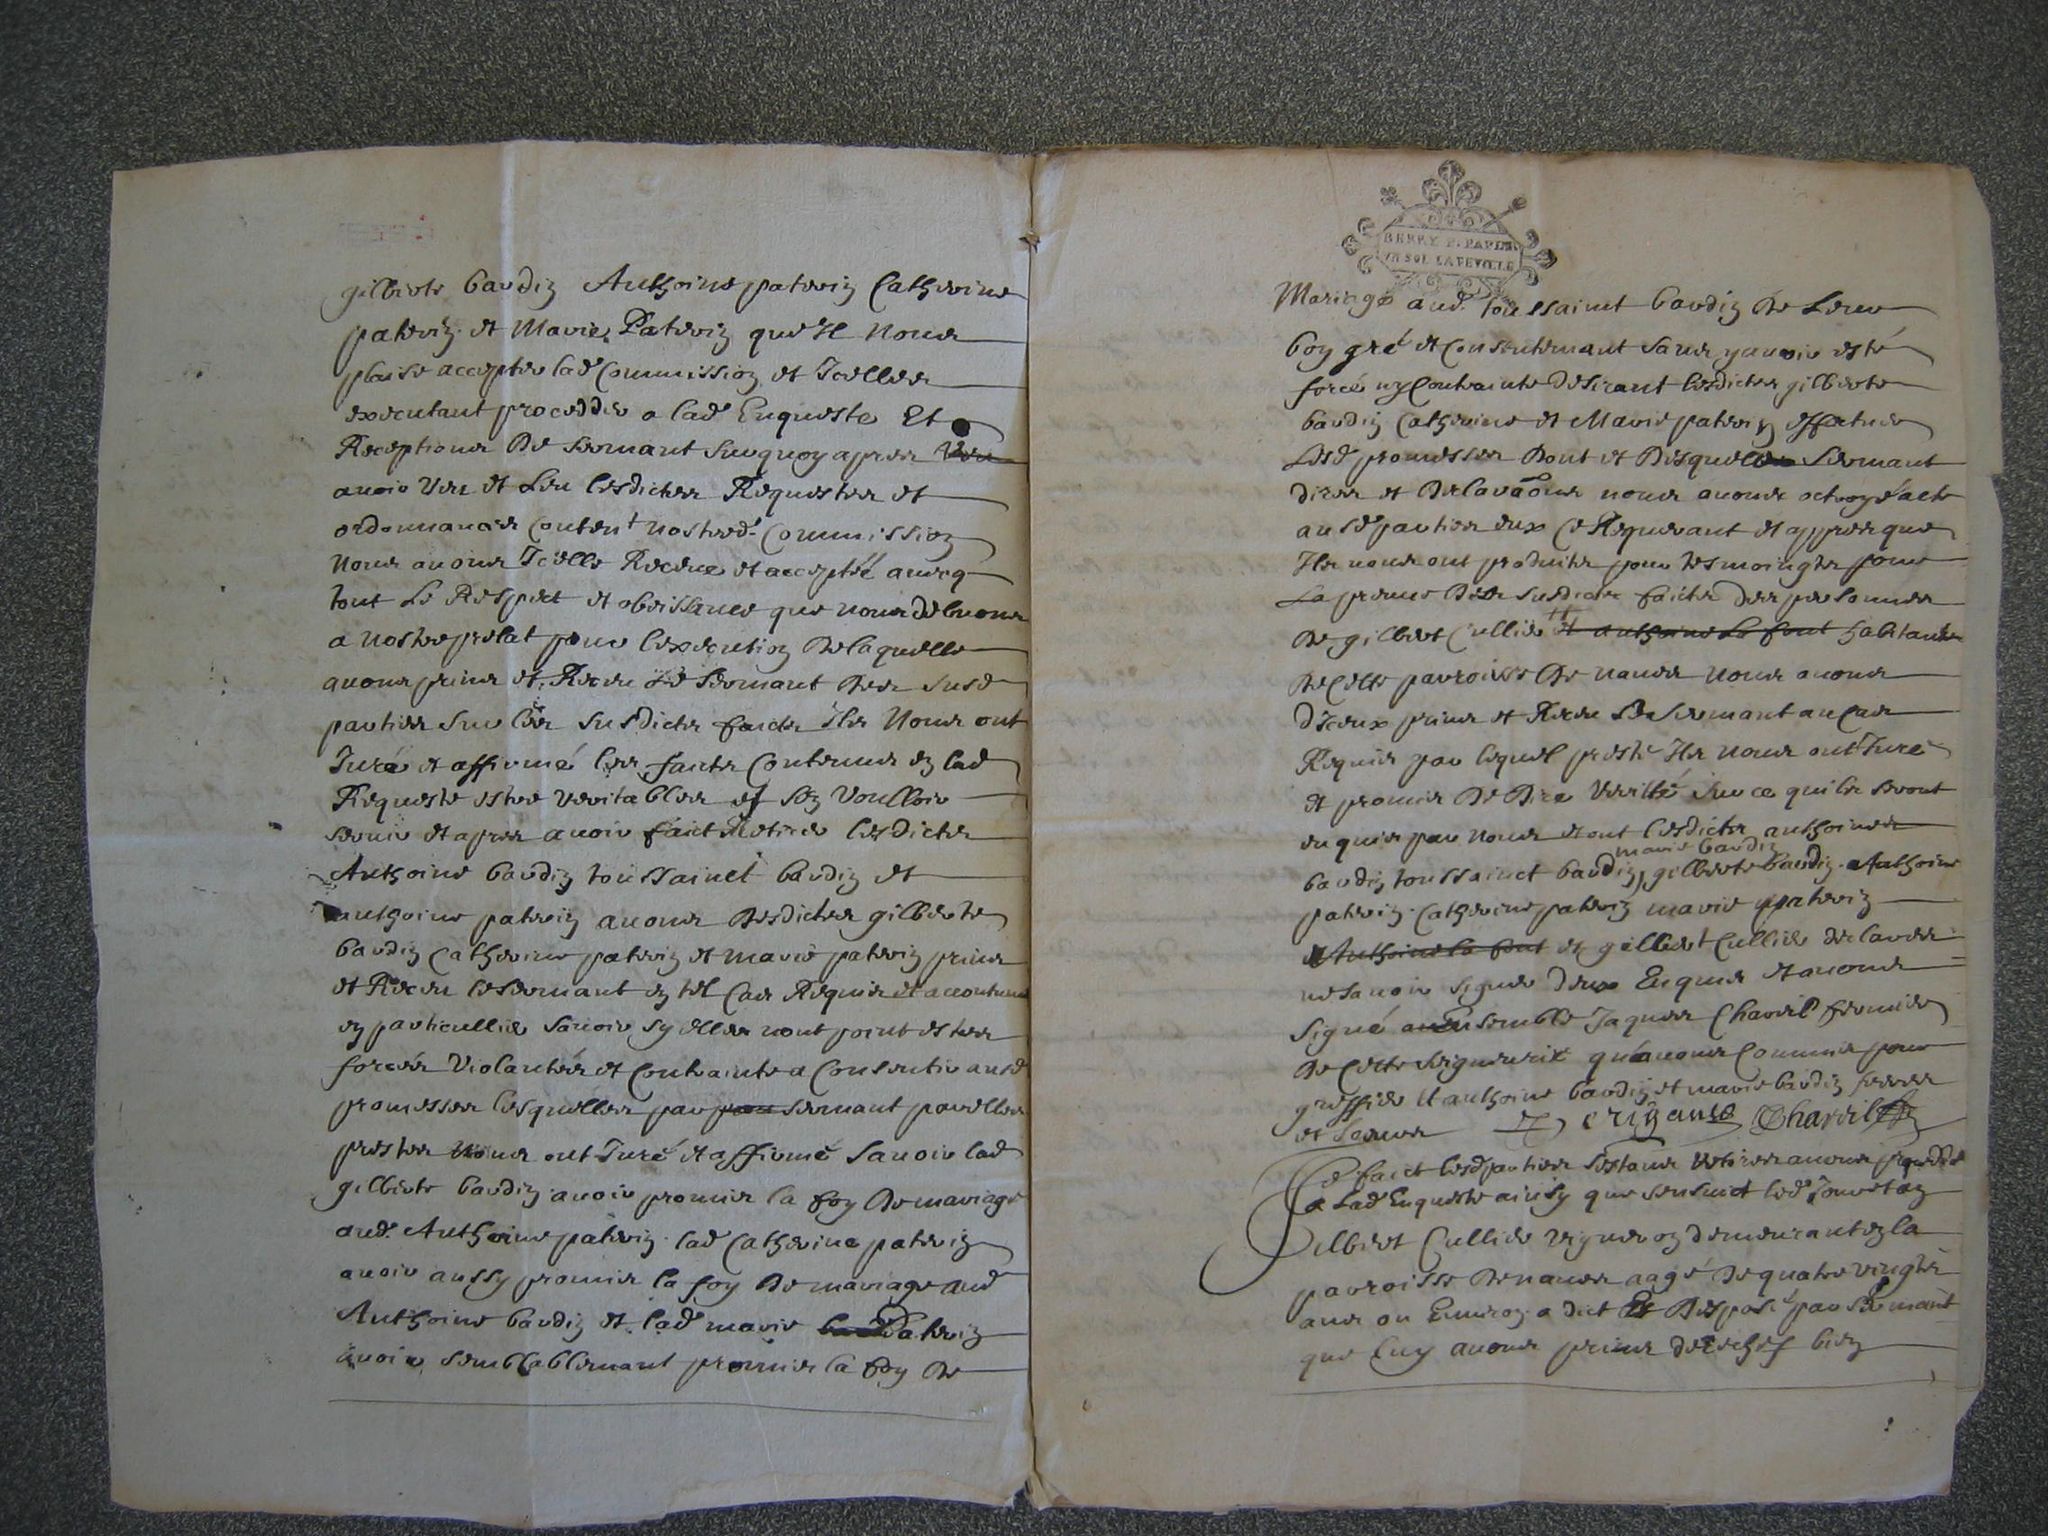 gilberte baudin Anthoine paterin Catherine
paterin et Marie Paterin que Il Nous
plaise accepter lad Commission et Icelles
executant procedder a lad Enqueste Et
Receptions De sermant surquoy apres veu
avoir veu et Leu lesdictes Requestes et
ordonnances conten^t nostred. Commission
Nous avons Icelle Receue et acceptée avecq
tout Le Respect et obeissance que nous debvons
a Nostre prelat pour l'execution De laquelle
avons prins et Receu Le sermant Des susd
parties sur les susdicts faicts Ils Nous ont
Juré et affirmé les faicts Contenus en lad
Requeste estre veritables et s'en voulloir
servir et apres avoir faict Retirer lesdicts
Anthoine baudin toussainct baudin et
anthoine paterin avons desdictes gilberte
baudin Catherine paterin et marie paterin prins
et Receu le sermant en tel Cas Requis et accoutumé
en particullier savoir sy elles n'ont point estees
forcées Violantées et Contrainte a Consentir ausd
promesses lesquelles par par sermant par elles
prester Nous ont Juré et affirmé savoir lad
gilberte baudin avoir promis la foy De mariage
aud. Anthoine paterin lad Catherine paterin
avoir aussy promis la foy De mariage aud
Anthoine baudin et lad marie Paterin
avoir semblablemant promis la foy De
BERRY P. PAPIER
UN SOL LA FEUILLE
Mariage aud. toussaint baudin De Leur
bon gré et Consentemant sans y avoir esté
forcé ny Contrainte Desirant lesdictes gilberte
baudin Catherine et Marie paterin effectuer
Lesd promesses Dont et Desquelles sermant
dires et Declaraõns nous avons octroyé acte
ausd parties eux Ce Requerant et appres que
Ils nous ont produits pour tesmoingtz pour
La preuve Des susdicts faicts des personnes
De gilbert Cullier et anthoine La font habitants
De Cette parroisse De naves Nous avons
d'Iceux prins et Receu Le sermant au Cas
Requis par lequel presté Ils nous ont Juré
et promis De Dire veritté sur ce quils seront
enquis par nous et ont lesdicts anthoines
marie baudin
baudin toussainct baudin, gilberte baudin Anthoine
paterin Catherine paterin marie paterin
Anthoine la font et gilbert Cullier declares
ne savoir signer d'eux Enquis et avons
signé ensemble Jaques Charvil fermier
De Cette seigneurie qu'avons Commis pour
greffier et anthoine baudin et marie baudin freres
et soeurs Charvil
Ce faict lesd parties s'estans retirees avons procedde
a Lad Enqueste ainsy que s'ensuict led Jour et an
Gilbert Cullier vigneron demeurant en la
parroisse De naves aagé De quatre vingts
ans ou Environ a dict Et Desposé par sermant
que luy avons prins derechef bien